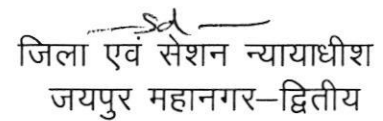 Sd
जिला एवं सेशन न्यायाधीश
जयपुर महानगर–द्वितीय